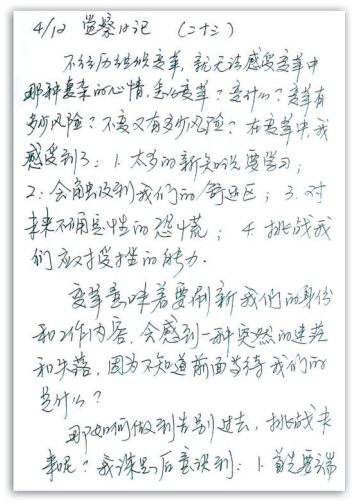 4/12 觉察日记 （二十三）
不经历组织变革，就无法感受变革中
那种复杂的心情，怎么变革？变什么？变革有
多少风险？不变又有多少风险？在变革中，我
感受到了：1. 太多的新知识要学习；
2. 会触及到我们的舒适区；3. 对
未来不确定性的恐慌；4. 挑战我
们应对受挫的能力.
变革意味着要刷新我们的身份
和工作内容，会感到一种突然的迷茫
和失落，因为不知道前面等待我们的
是什么？
那如何做到告别过去，挑战未
来呢？我课后意识到：1. 首先要端